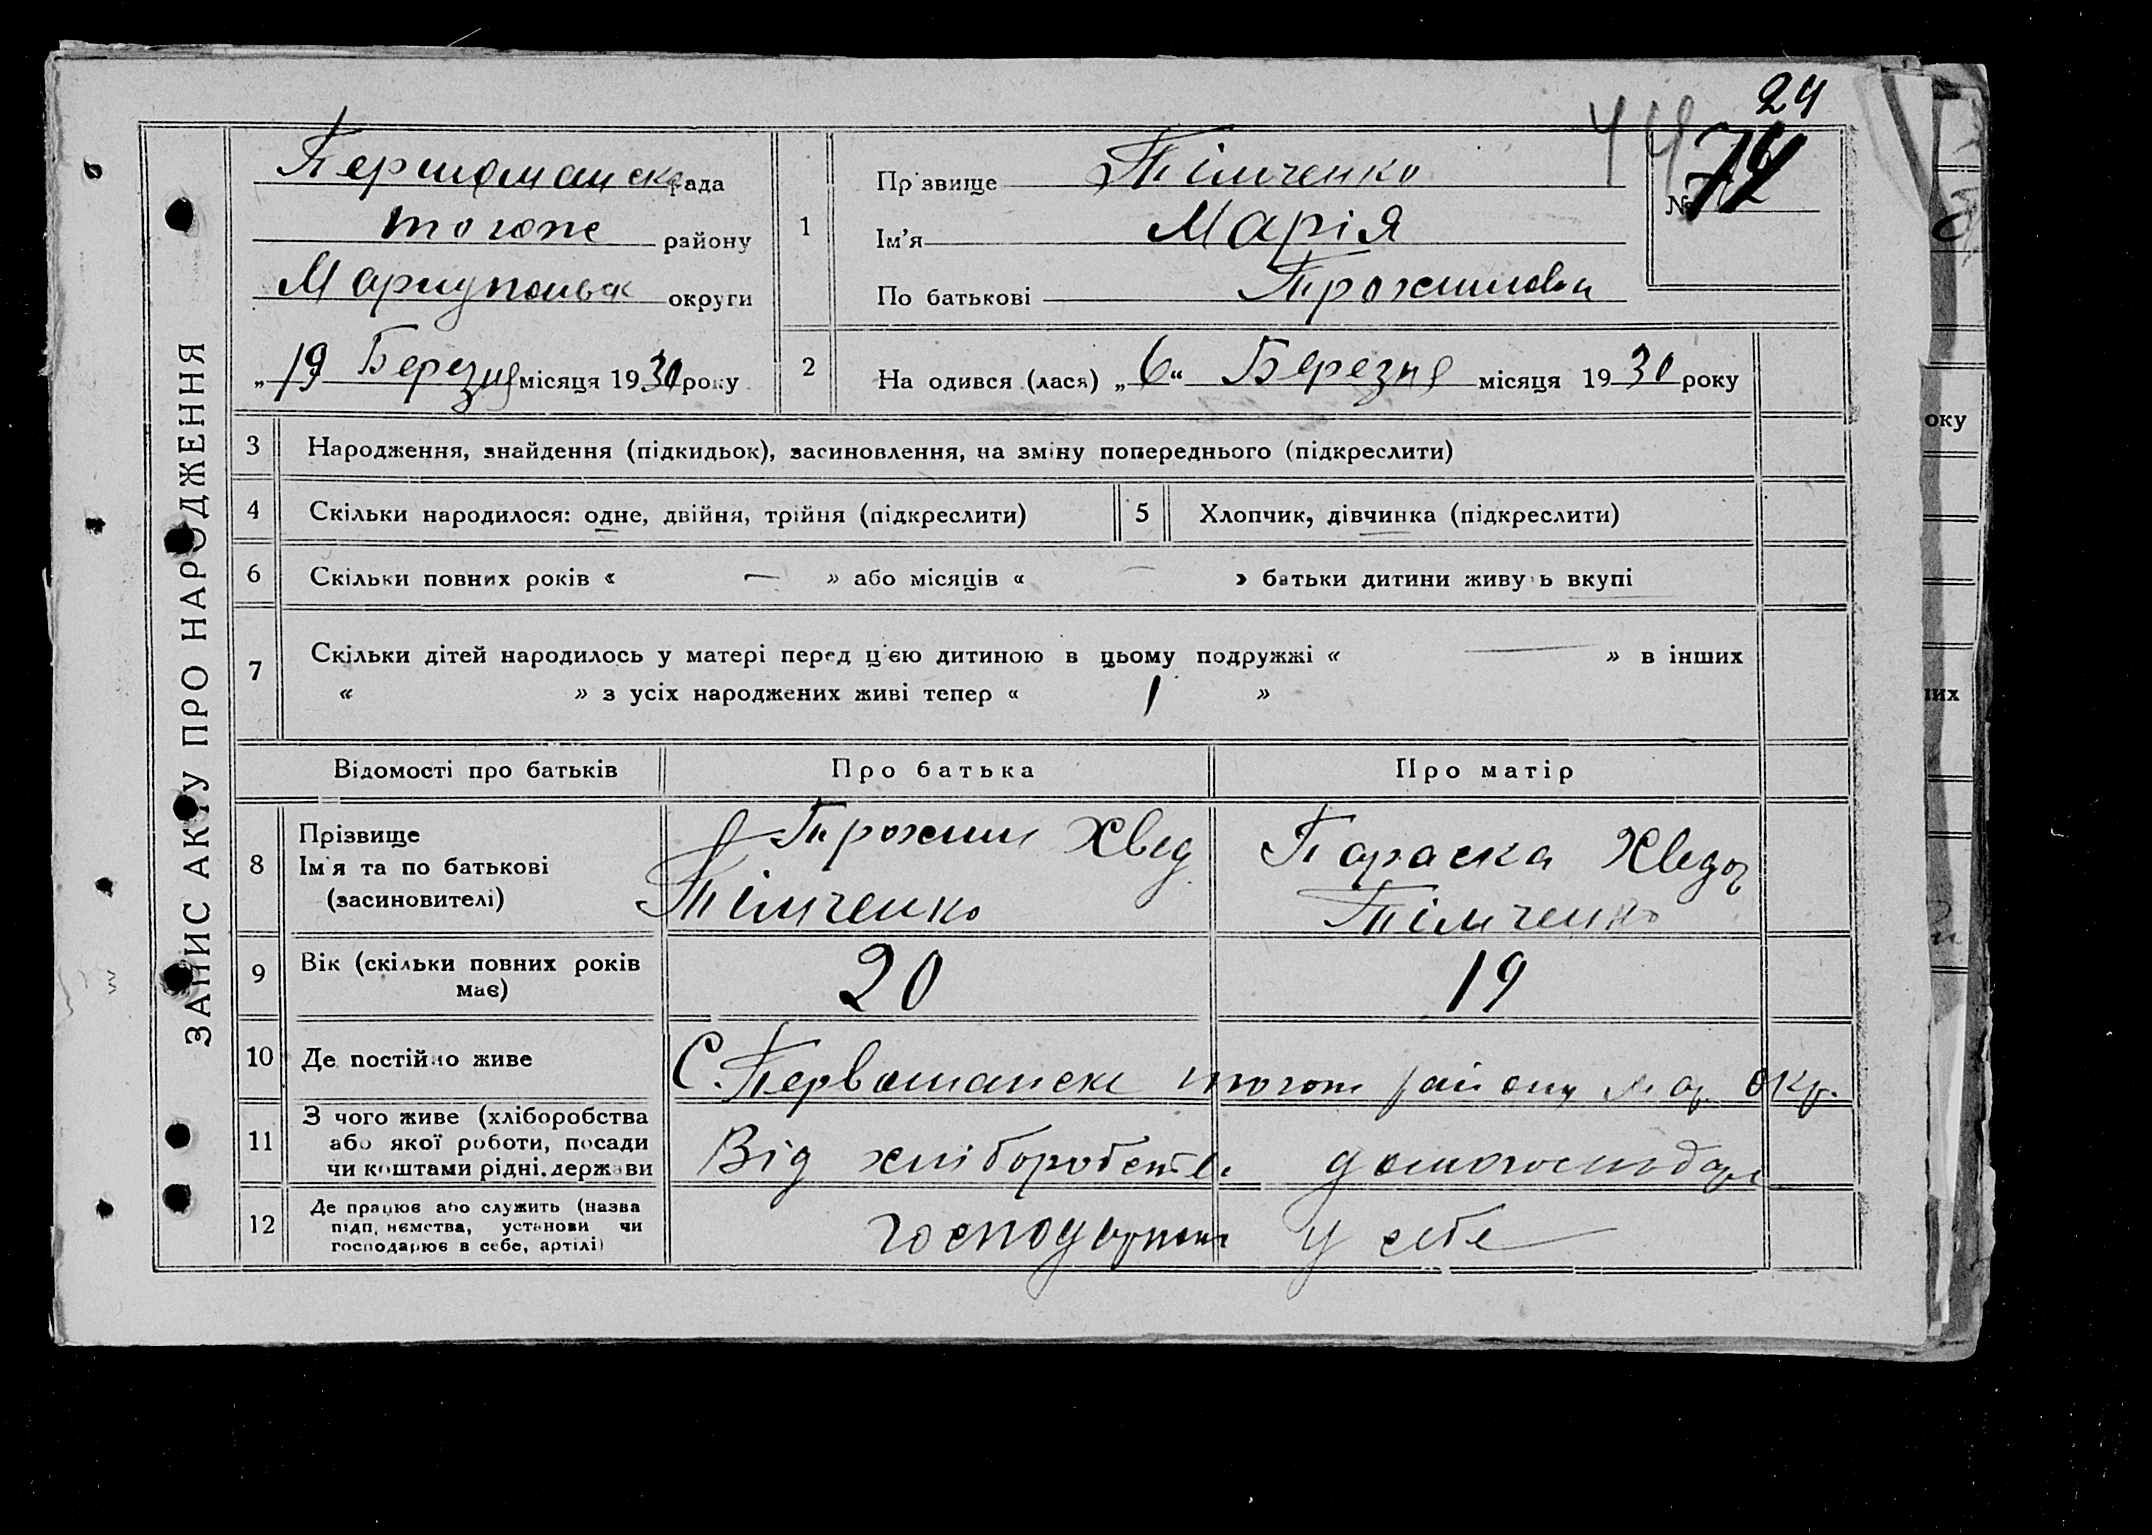 24
44
№ 74
ЗАПИС АКТУ ПРО НАРОДЖЕННЯ
Першоманск рада
тогоже району
Маріупольск округи
„19 Березня місяця 1930 року
1
Прізвище Тімченко
Ім’я Марія
По батькові Трохимовна
2
На одився (лася) „6“ Березня місяця 1930 року
3 Народження, знайдення (підкидьок), засиновлення, на зміну попереднього (підкреслити)
4 Скільки народилося: одне, двійня, трійня (підкреслити)
5 Хлопчик, дівчинка (підкреслити)
6 Скільки повних років « — » або місяців « — » батьки дитини живуть вкупі
7 Скільки дітей народилось у матері перед цією дитиною в цьому подружжі « — » в інших
« » з усіх народжених живі тепер « 1 »
Відомості про батьків
Про батька
Про матір
8 Прізвище
Ім’я та по батькові
(засиновителі)
Трохим Хвед
Тімченко
Параска Хведор
Тімченко
9 Вік (скільки повних років
має)
20
19
10 Де постійно живе
С. Первоманск тогож району Мар. окр.
11 З чого живе (хліборобства
або якої роботи, посади
чи коштами рідні, держави
Від хліборобства домогосподар
12 Де працює або служить (назва
підприємства, установи чи
господарює в себе, артілі)
у себе
оку
них